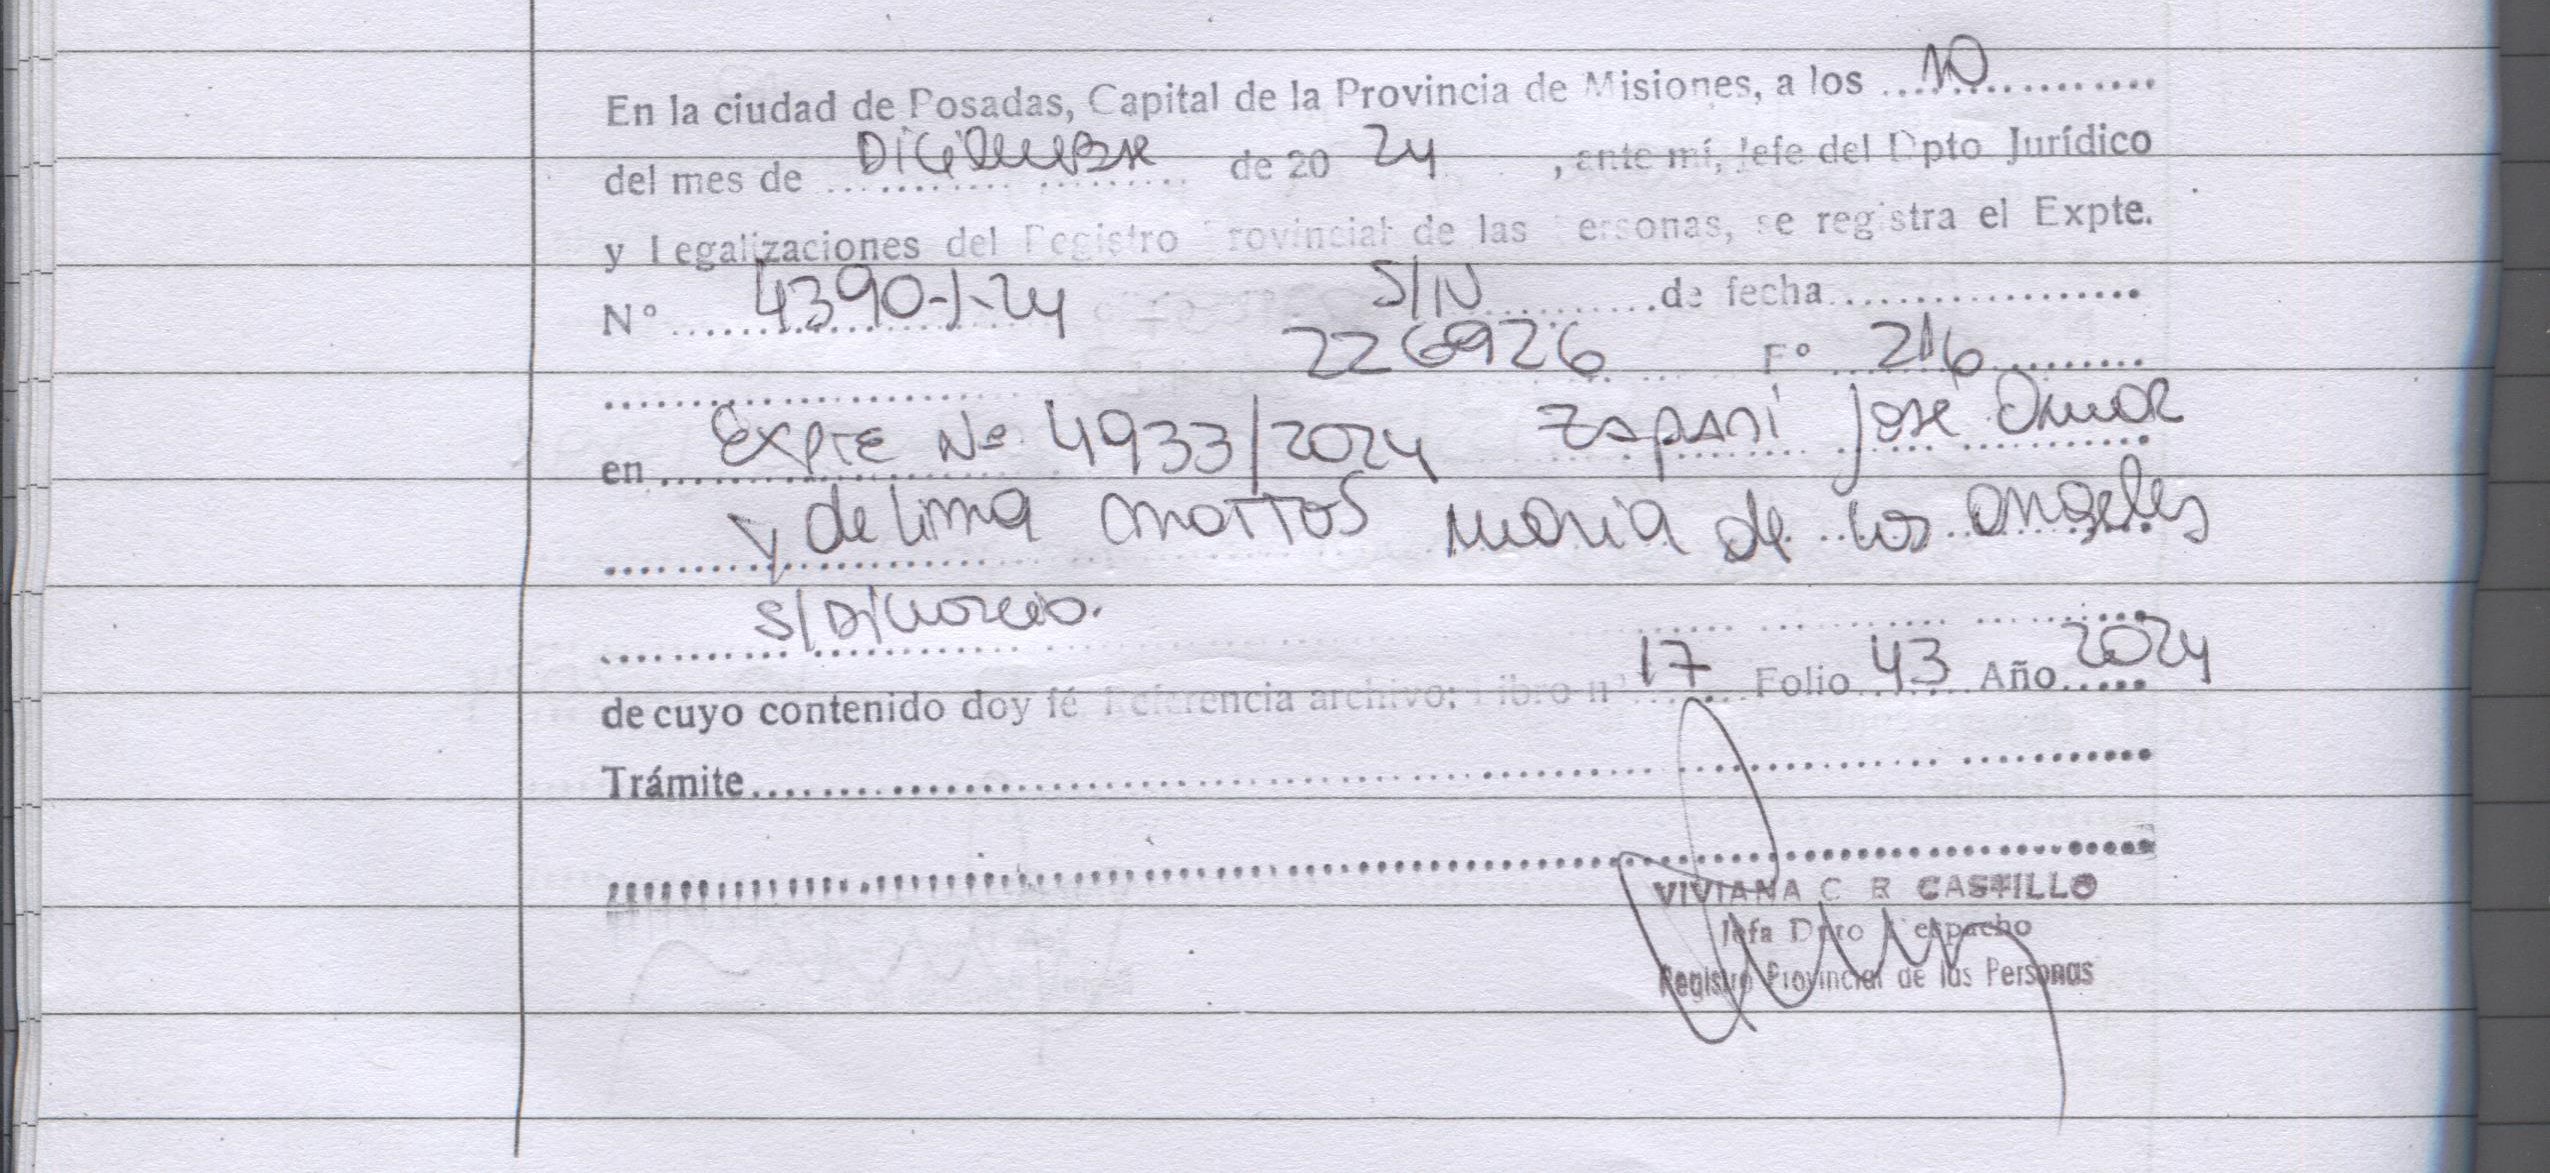 En la ciudad de Posadas, Capital de la Provincia de Misiones, a los 10
del mes de Diciembre de 20 24, ante mí, Jefe del Dpto Jurídico
y Legalizaciones del Registro Provincial de las Personas, se registra el Expte.
Nº 4390-J-24 S/N de fecha
226926 Fº 216
en Expte Nº 4933/2024 Zapani Jose Omar
y de lima mattos maria de los angeles
S/Divorcio.
de cuyo contenido doy fé Referencia archivo: Libro nº 17 Folio 43 Año 2024
Trámite
VIVIANA C R CASTILLO
Jefa Dpto Despacho
Registro Provincial de las Personas